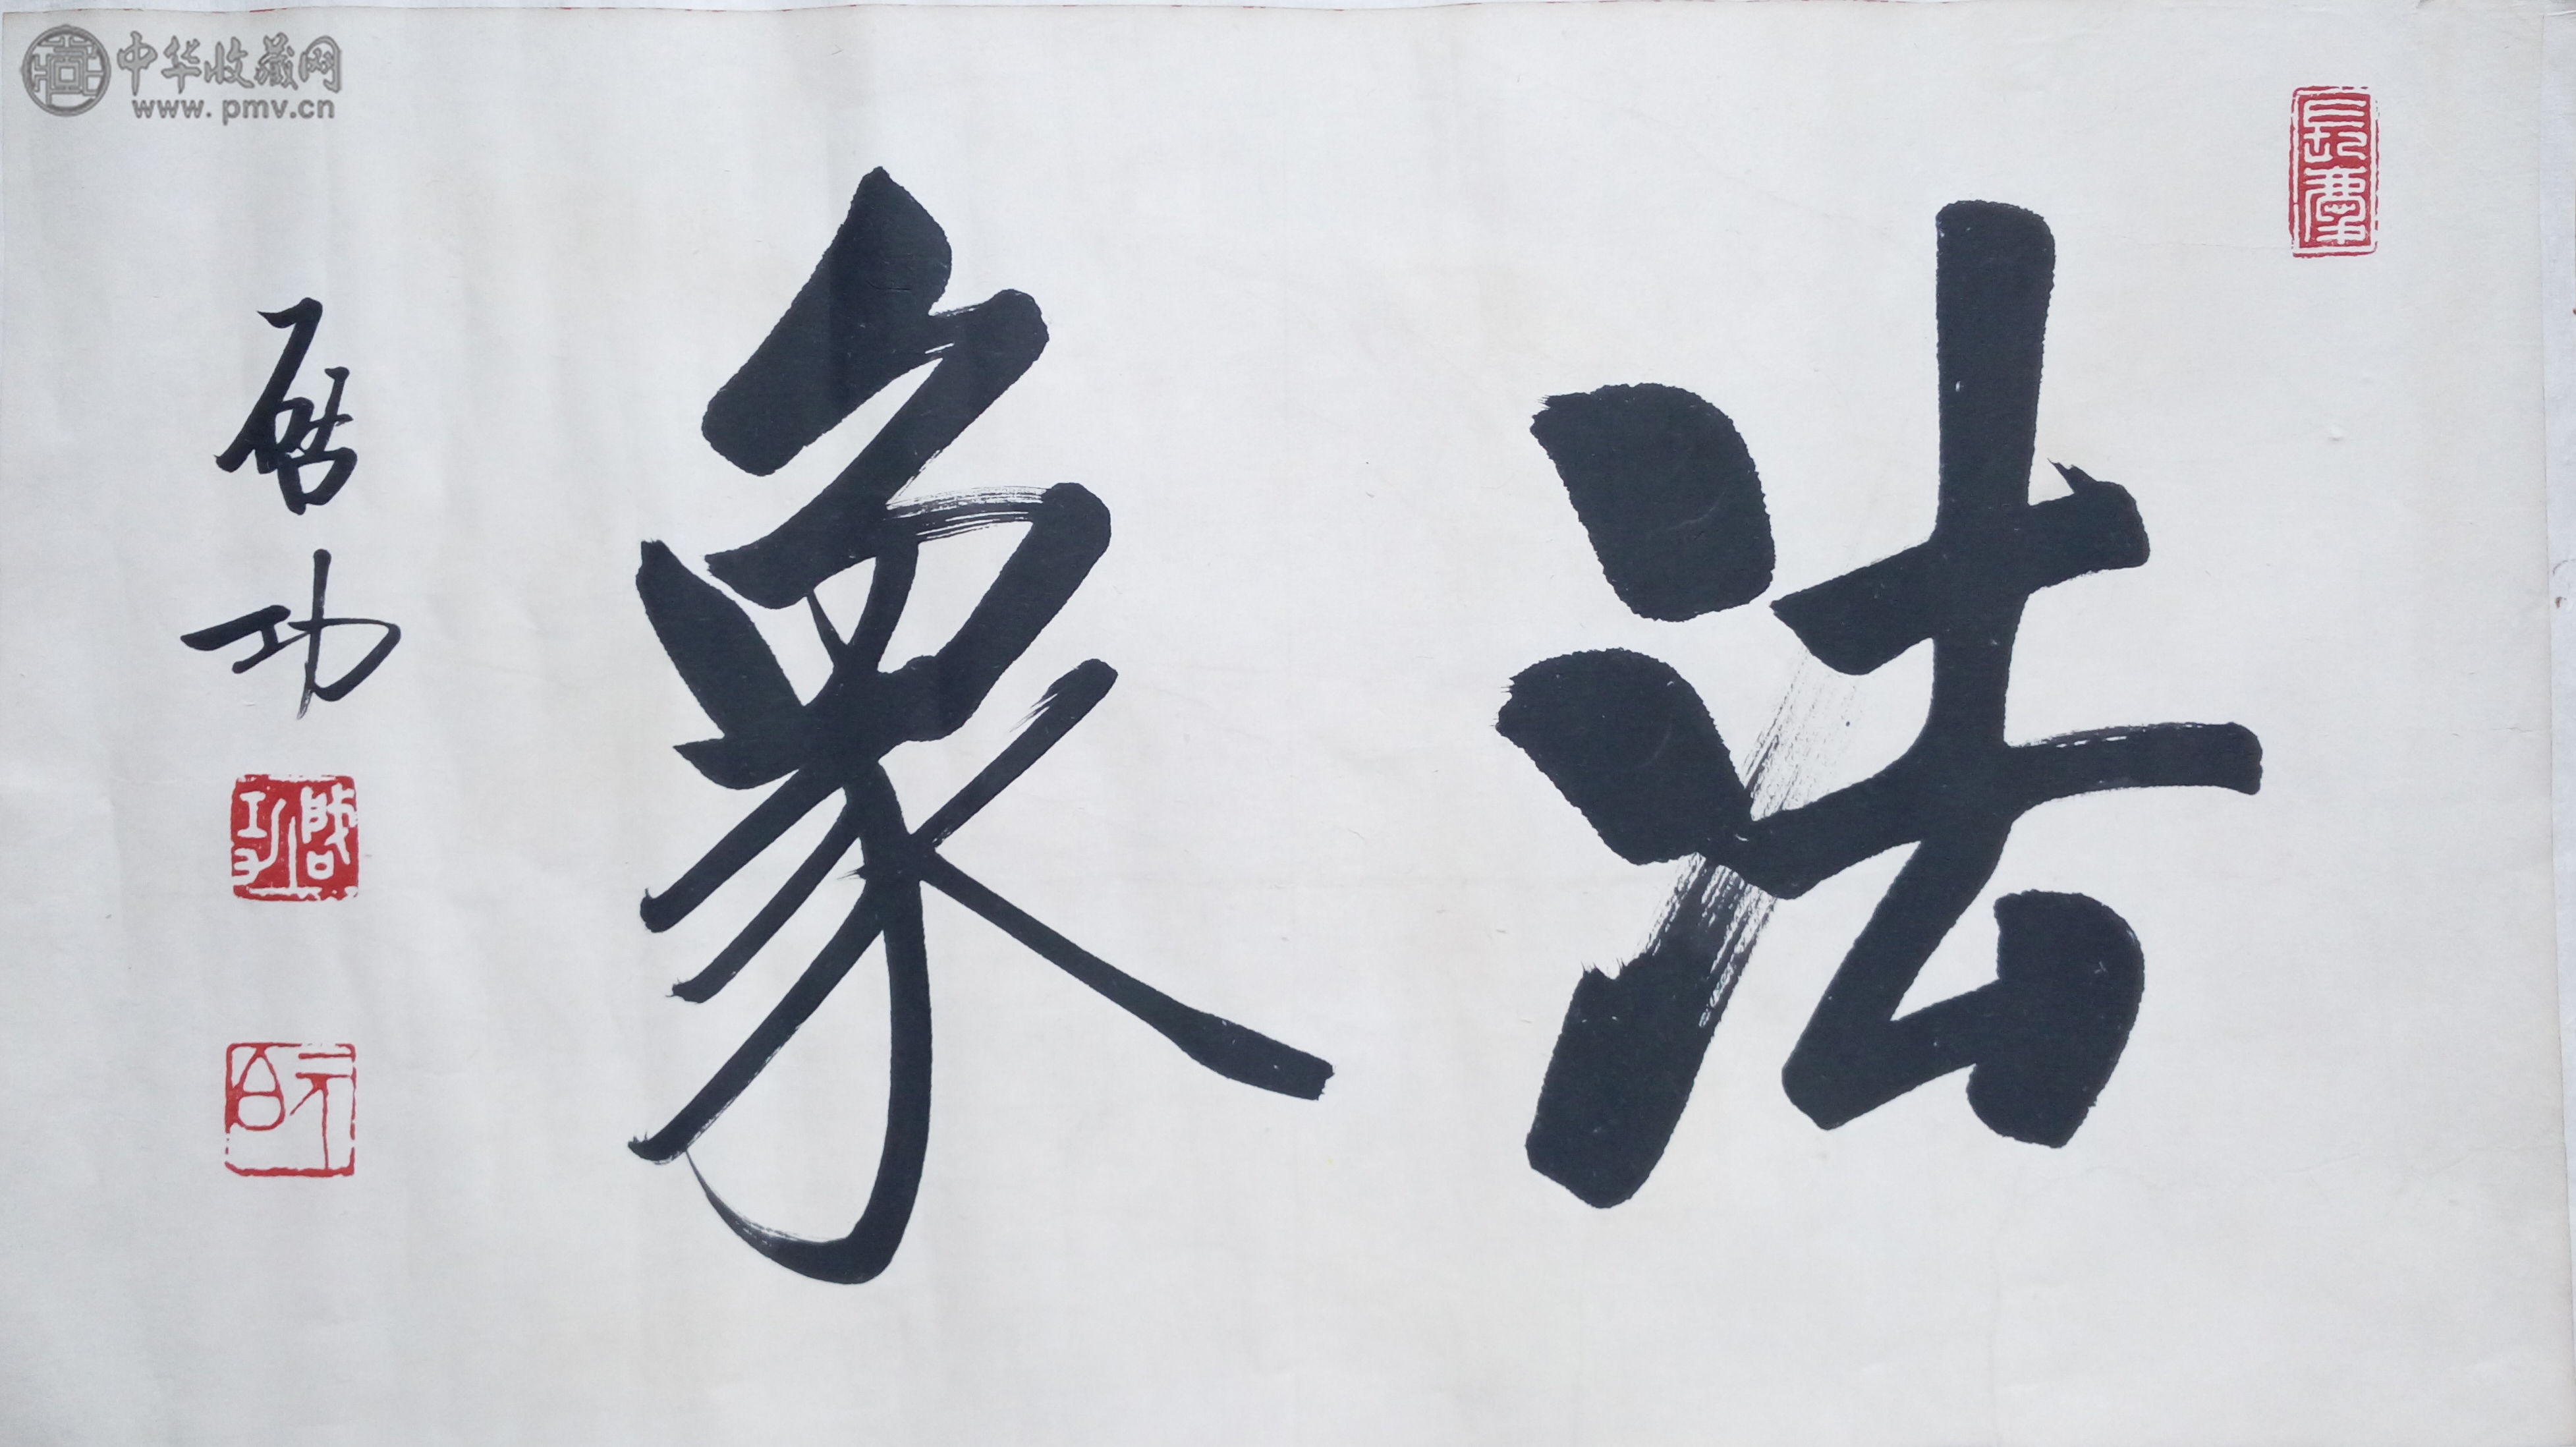 中华收藏网
www.pmv.cn
法象
启功
启功
元白